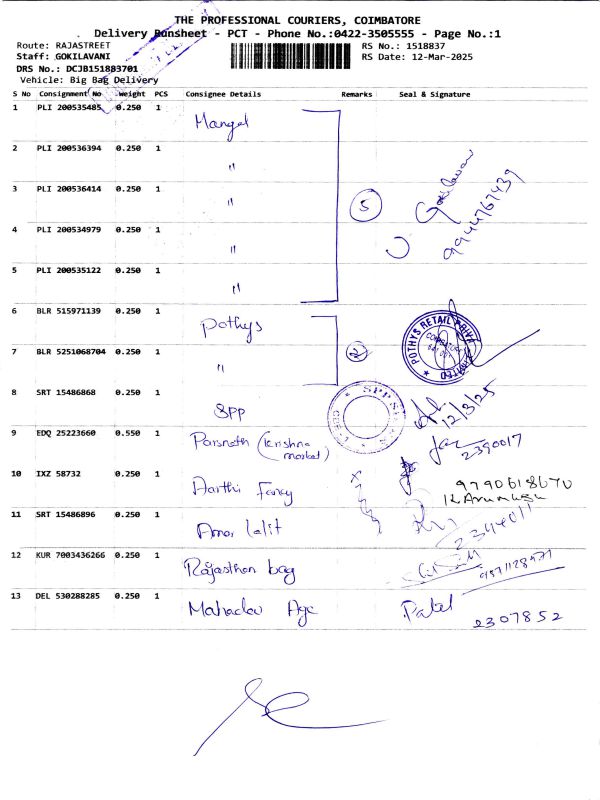 THE PROFESSIONAL COURIERS, COIMBATORE
Delivery Runsheet - PCT - Phone No.:0422-3505555 - Page No.:1
Route: RAJASTREET RS No.: 1518837
Staff: GOKILAVANI RS Date: 12-Mar-2025
DRS No.: DCJB151883701
Vehicle: Big Bag Delivery
S No Consignment No Weight PCS Consignee Details Remarks Seal & Signature
1 PLI 200535485 0.250 1 Mangal
2 PLI 200536394 0.250 1 "
3 PLI 200536414 0.250 1 " 5 Gokilavani
9944767439
4 PLI 200534979 0.250 1 "
5 PLI 200535122 0.250 1 "
6 BLR 515971139 0.250 1 Pothys
POTHYS RETAIL PRIVATE LIMITED
COIMBATORE
7 BLR 5251068704 0.250 1 " 2
8 SRT 15486868 0.250 1 SPP 12/3/25
9 EDQ 25223660 0.550 1 Parsnath (krishna market) 2390017
10 IXZ 58732 0.250 1 Aarthi Fancy 9790618670
K Arumugu
11 SRT 15486896 0.250 1 Amar lalit 2344011
12 KUR 7003436266 0.250 1 Rajasthan bag 9571128971
13 DEL 530288285 0.250 1 Mahadev Age Patel 2307852